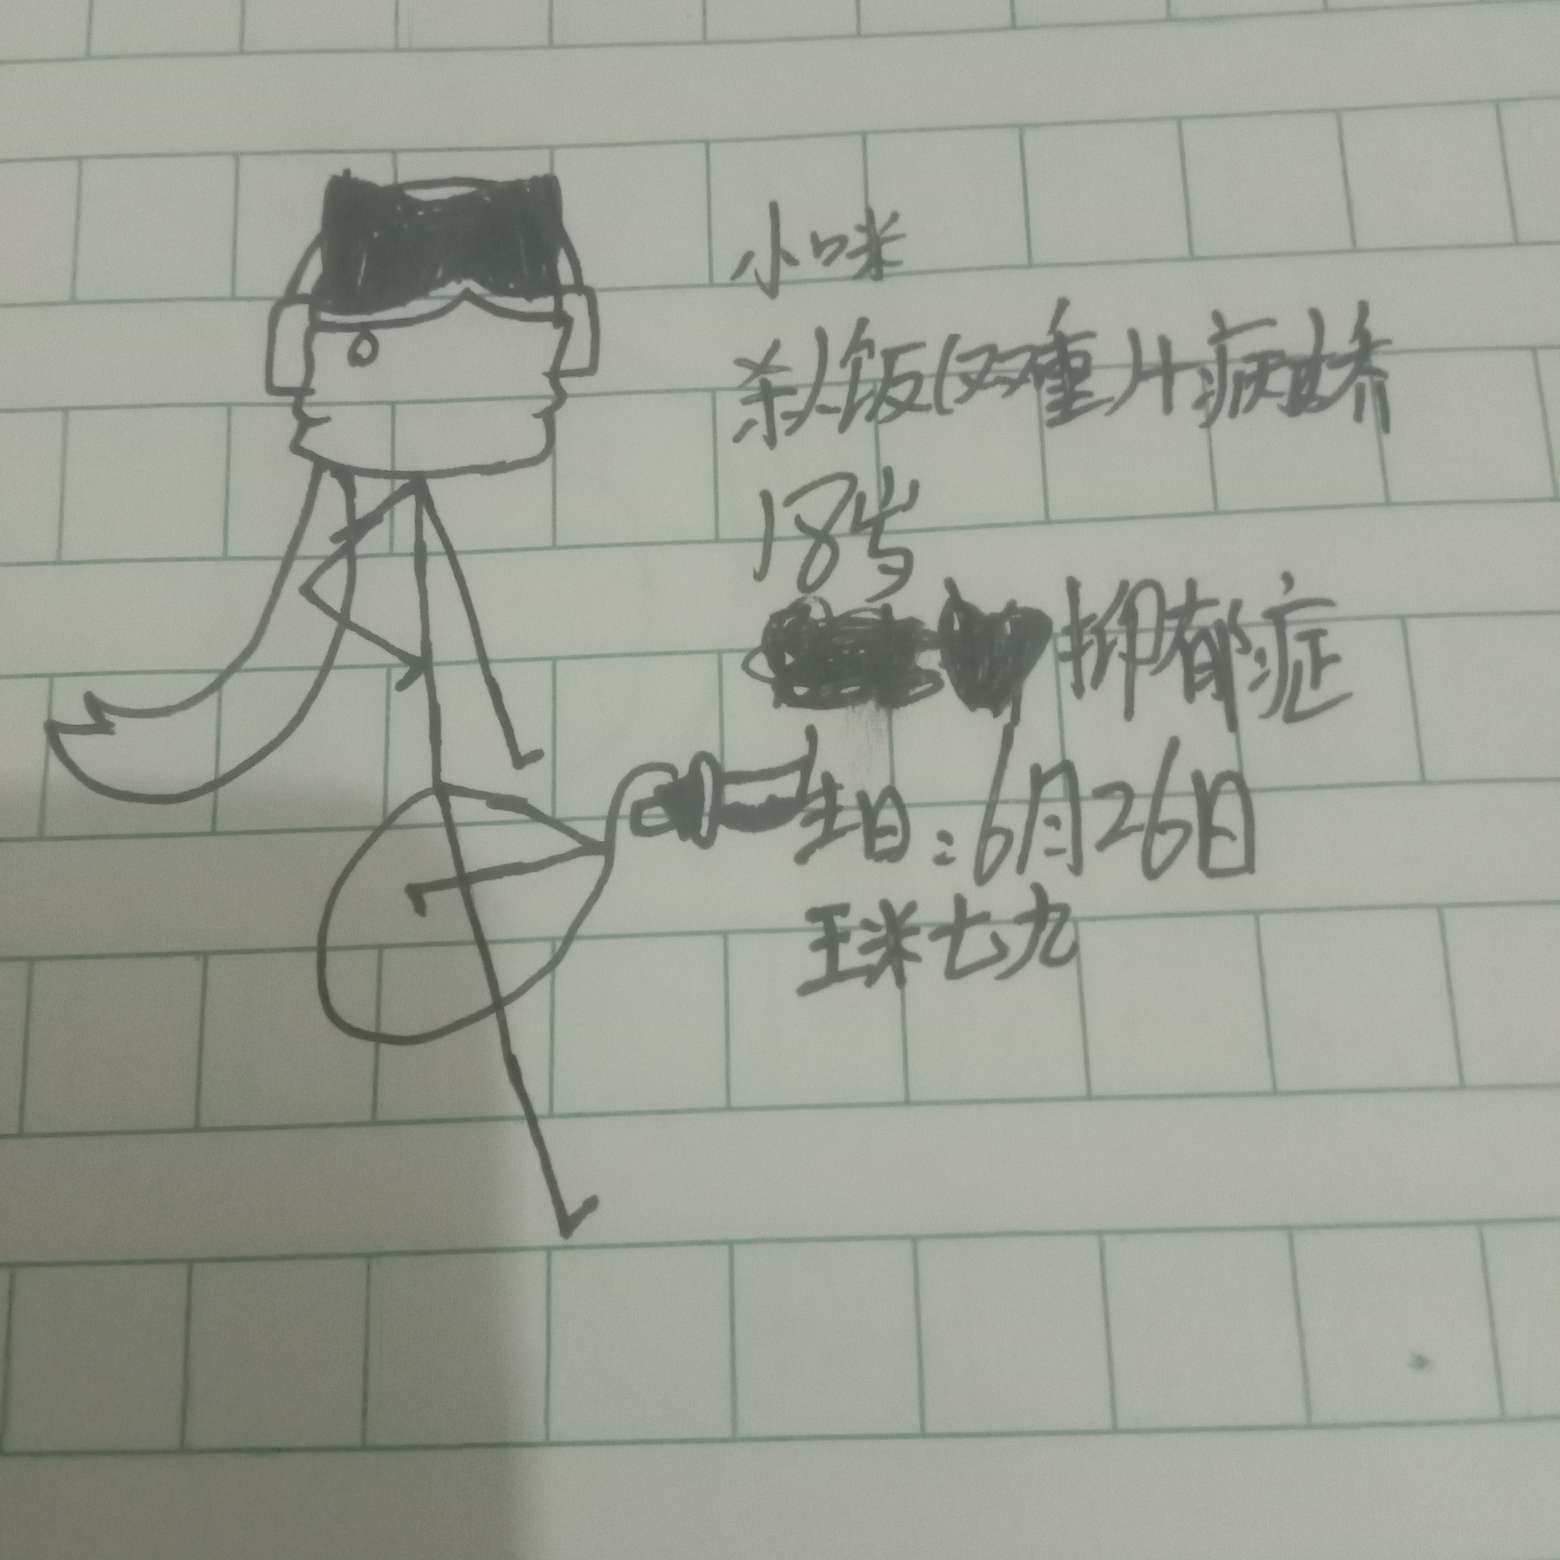 小咪
杀人饭(双重)+病娇
18岁
抑郁症
生日:6月26日
王米七九